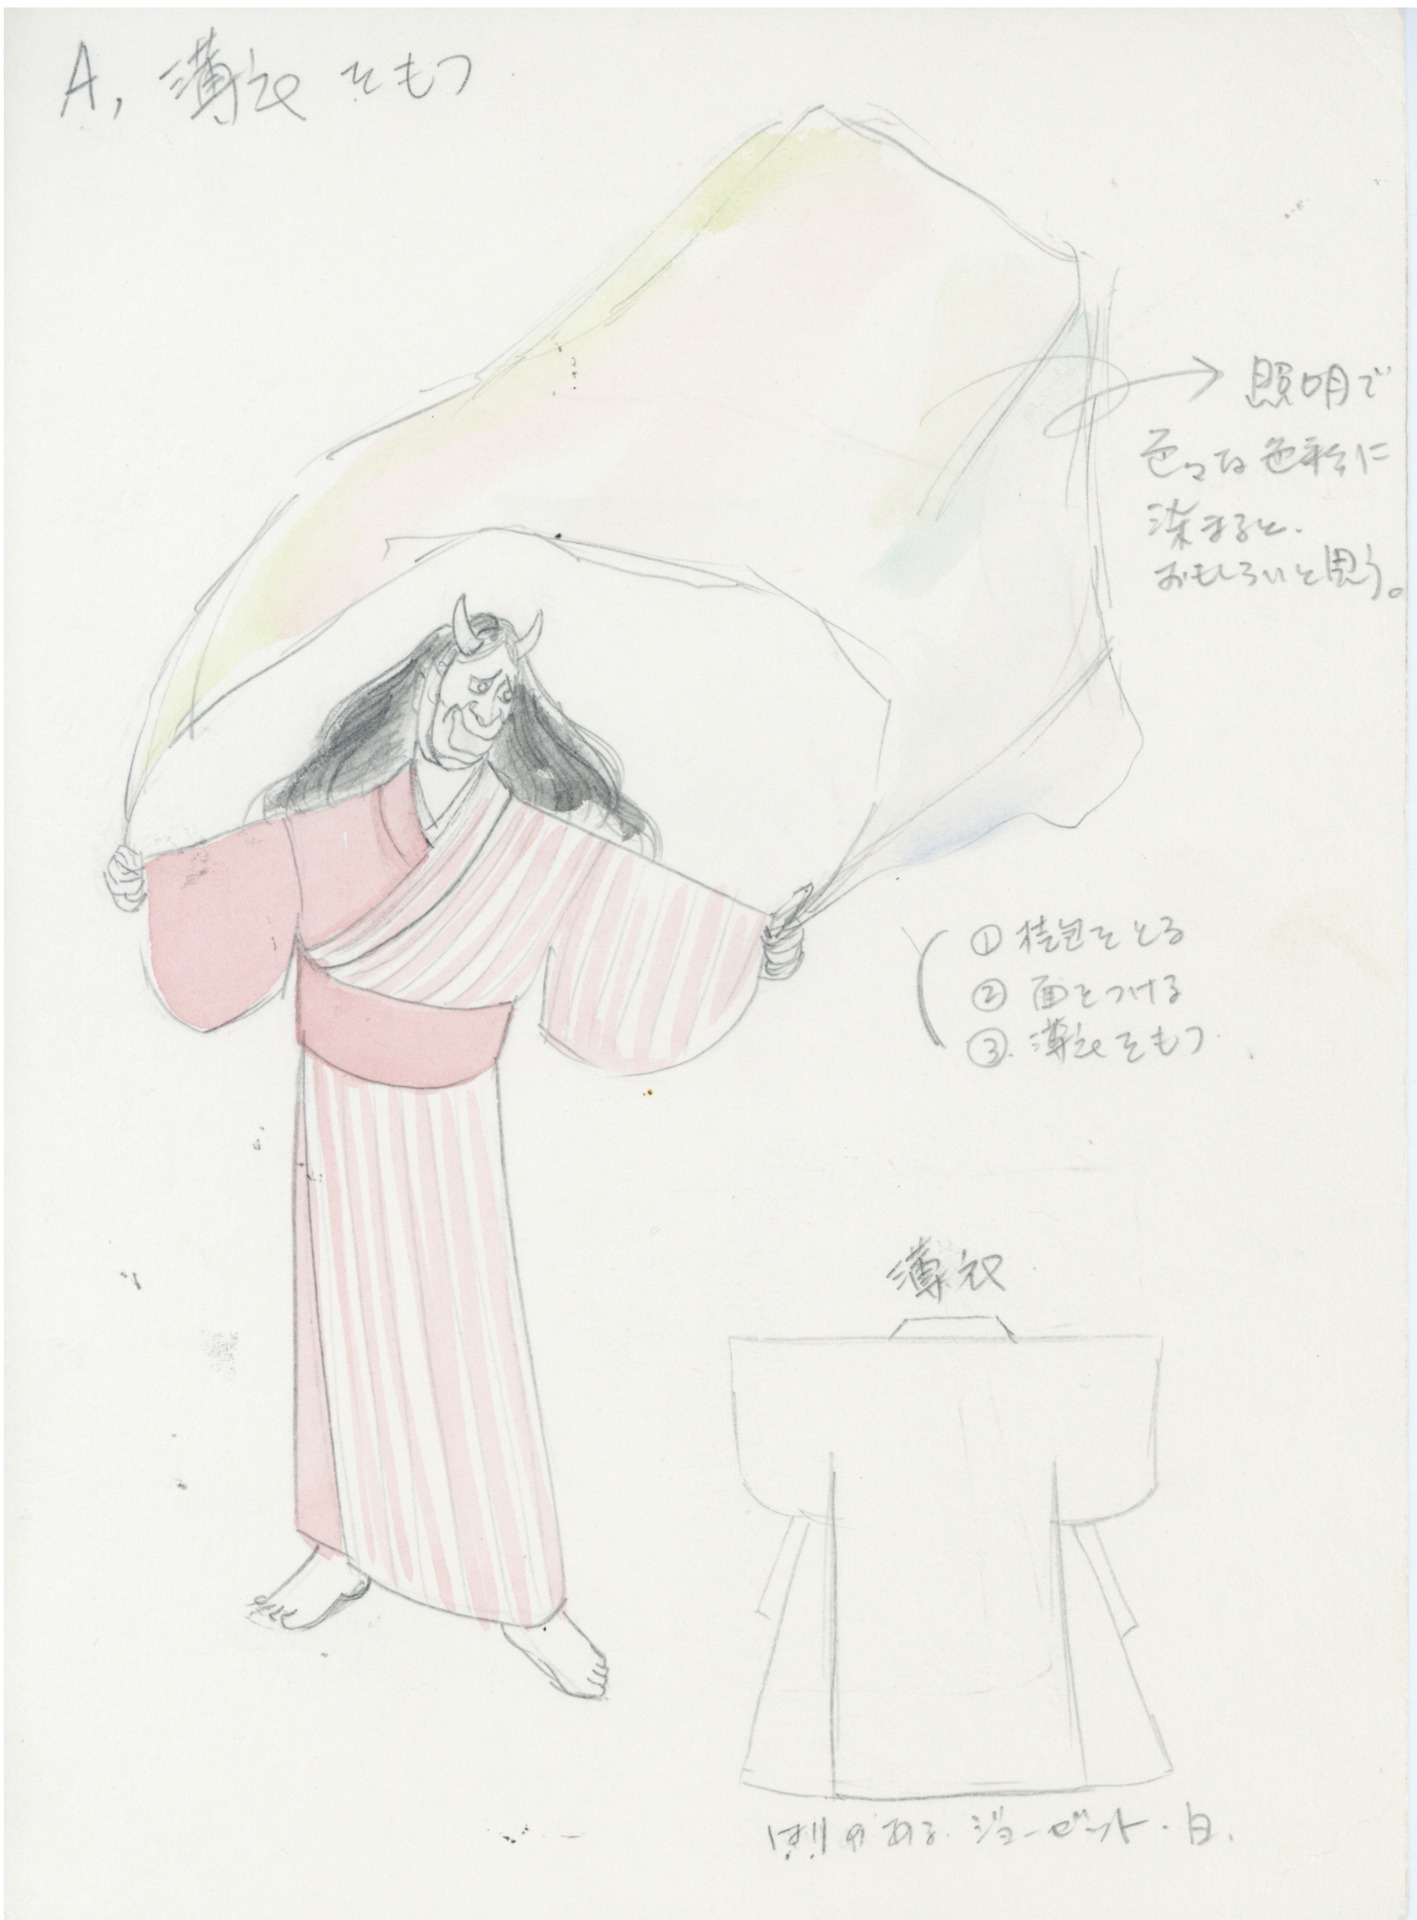 A, 薄衣をもつ
照明で
色々な色彩に
染まると、
おもしろいと思う。
① 桂包をとる
② 面をつける
③. 薄衣をもつ
薄衣
はりのある ジョーゼット・白.